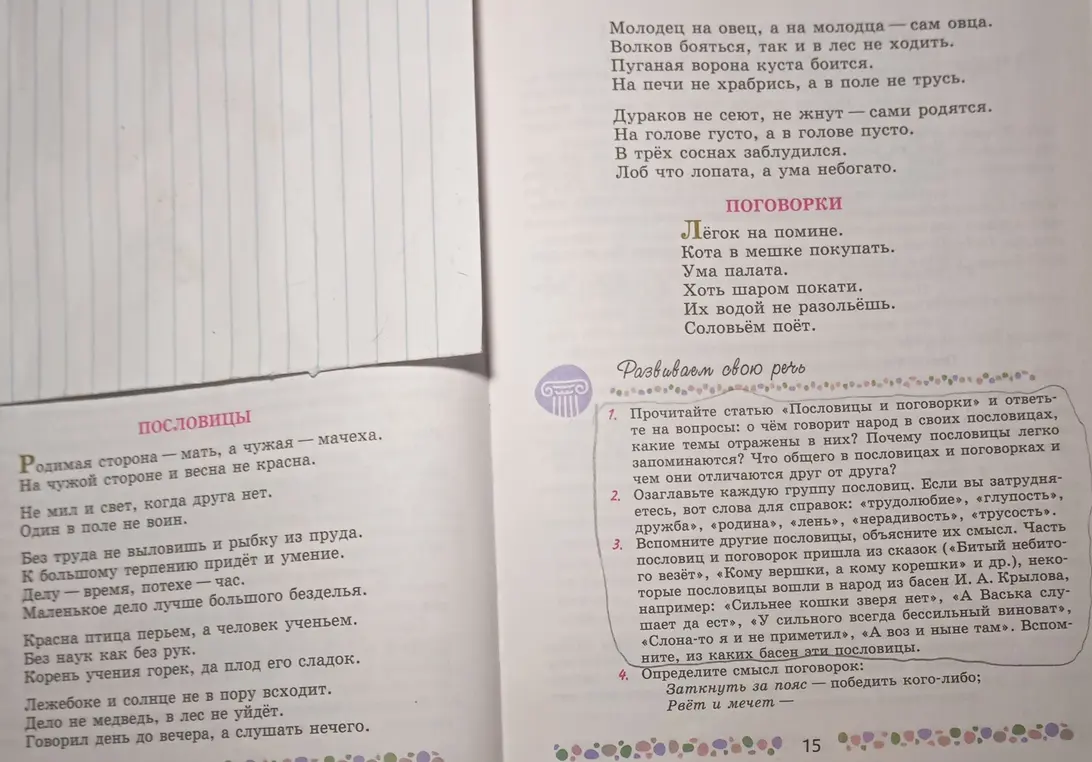 ПОСЛОВИЦЫ
Родимая сторона — мать, а чужая — мачеха.
На чужой стороне и весна не красна.
Не мил и свет, когда друга нет.
Один в поле не воин.
Без труда не выловишь и рыбку из пруда.
К большому терпению придёт и умение.
Делу — время, потехе — час.
Маленькое дело лучше большого безделья.
Красна птица перьем, а человек ученьем.
Без наук как без рук.
Корень учения горек, да плод его сладок.
Лежебоке и солнце не в пору всходит.
Дело не медведь, в лес не уйдёт.
Говорил день до вечера, а слушать нечего.
Молодец на овец, а на молодца — сам овца.
Волков бояться, так и в лес не ходить.
Пуганая ворона куста боится.
На печи не храбрись, а в поле не трусь.
Дураков не сеют, не жнут — сами родятся.
На голове густо, а в голове пусто.
В трёх соснах заблудился.
Лоб что лопата, а ума небогато.
ПОГОВОРКИ
Лёгок на помине.
Кота в мешке покупать.
Ума палата.
Хоть шаром покати.
Их водой не разольёшь.
Соловьём поёт.
Развиваем свою речь
1. Прочитайте статью «Пословицы и поговорки» и ответь-
те на вопросы: о чём говорит народ в своих пословицах,
какие темы отражены в них? Почему пословицы легко
запоминаются? Что общего в пословицах и поговорках и
чем они отличаются друг от друга?
2. Озаглавьте каждую группу пословиц. Если вы затрудня-
етесь, вот слова для справок: «трудолюбие», «глупость»,
дружба», «родина», «лень», «нерадивость», «трусость».
3. Вспомните другие пословицы, объясните их смысл. Часть
пословиц и поговорок пришла из сказок («Битый небито-
го везёт», «Кому вершки, а кому корешки» и др.), неко-
торые пословицы вошли в народ из басен И. А. Крылова,
например: «Сильнее кошки зверя нет», «А Васька слу-
шает да ест», «У сильного всегда бессильный виноват»,
«Слона-то я и не приметил», «А воз и ныне там». Вспом-
ните, из каких басен эти пословицы.
4. Определите смысл поговорок:
Заткнуть за пояс — победить кого-либо;
Рвёт и мечет —
15